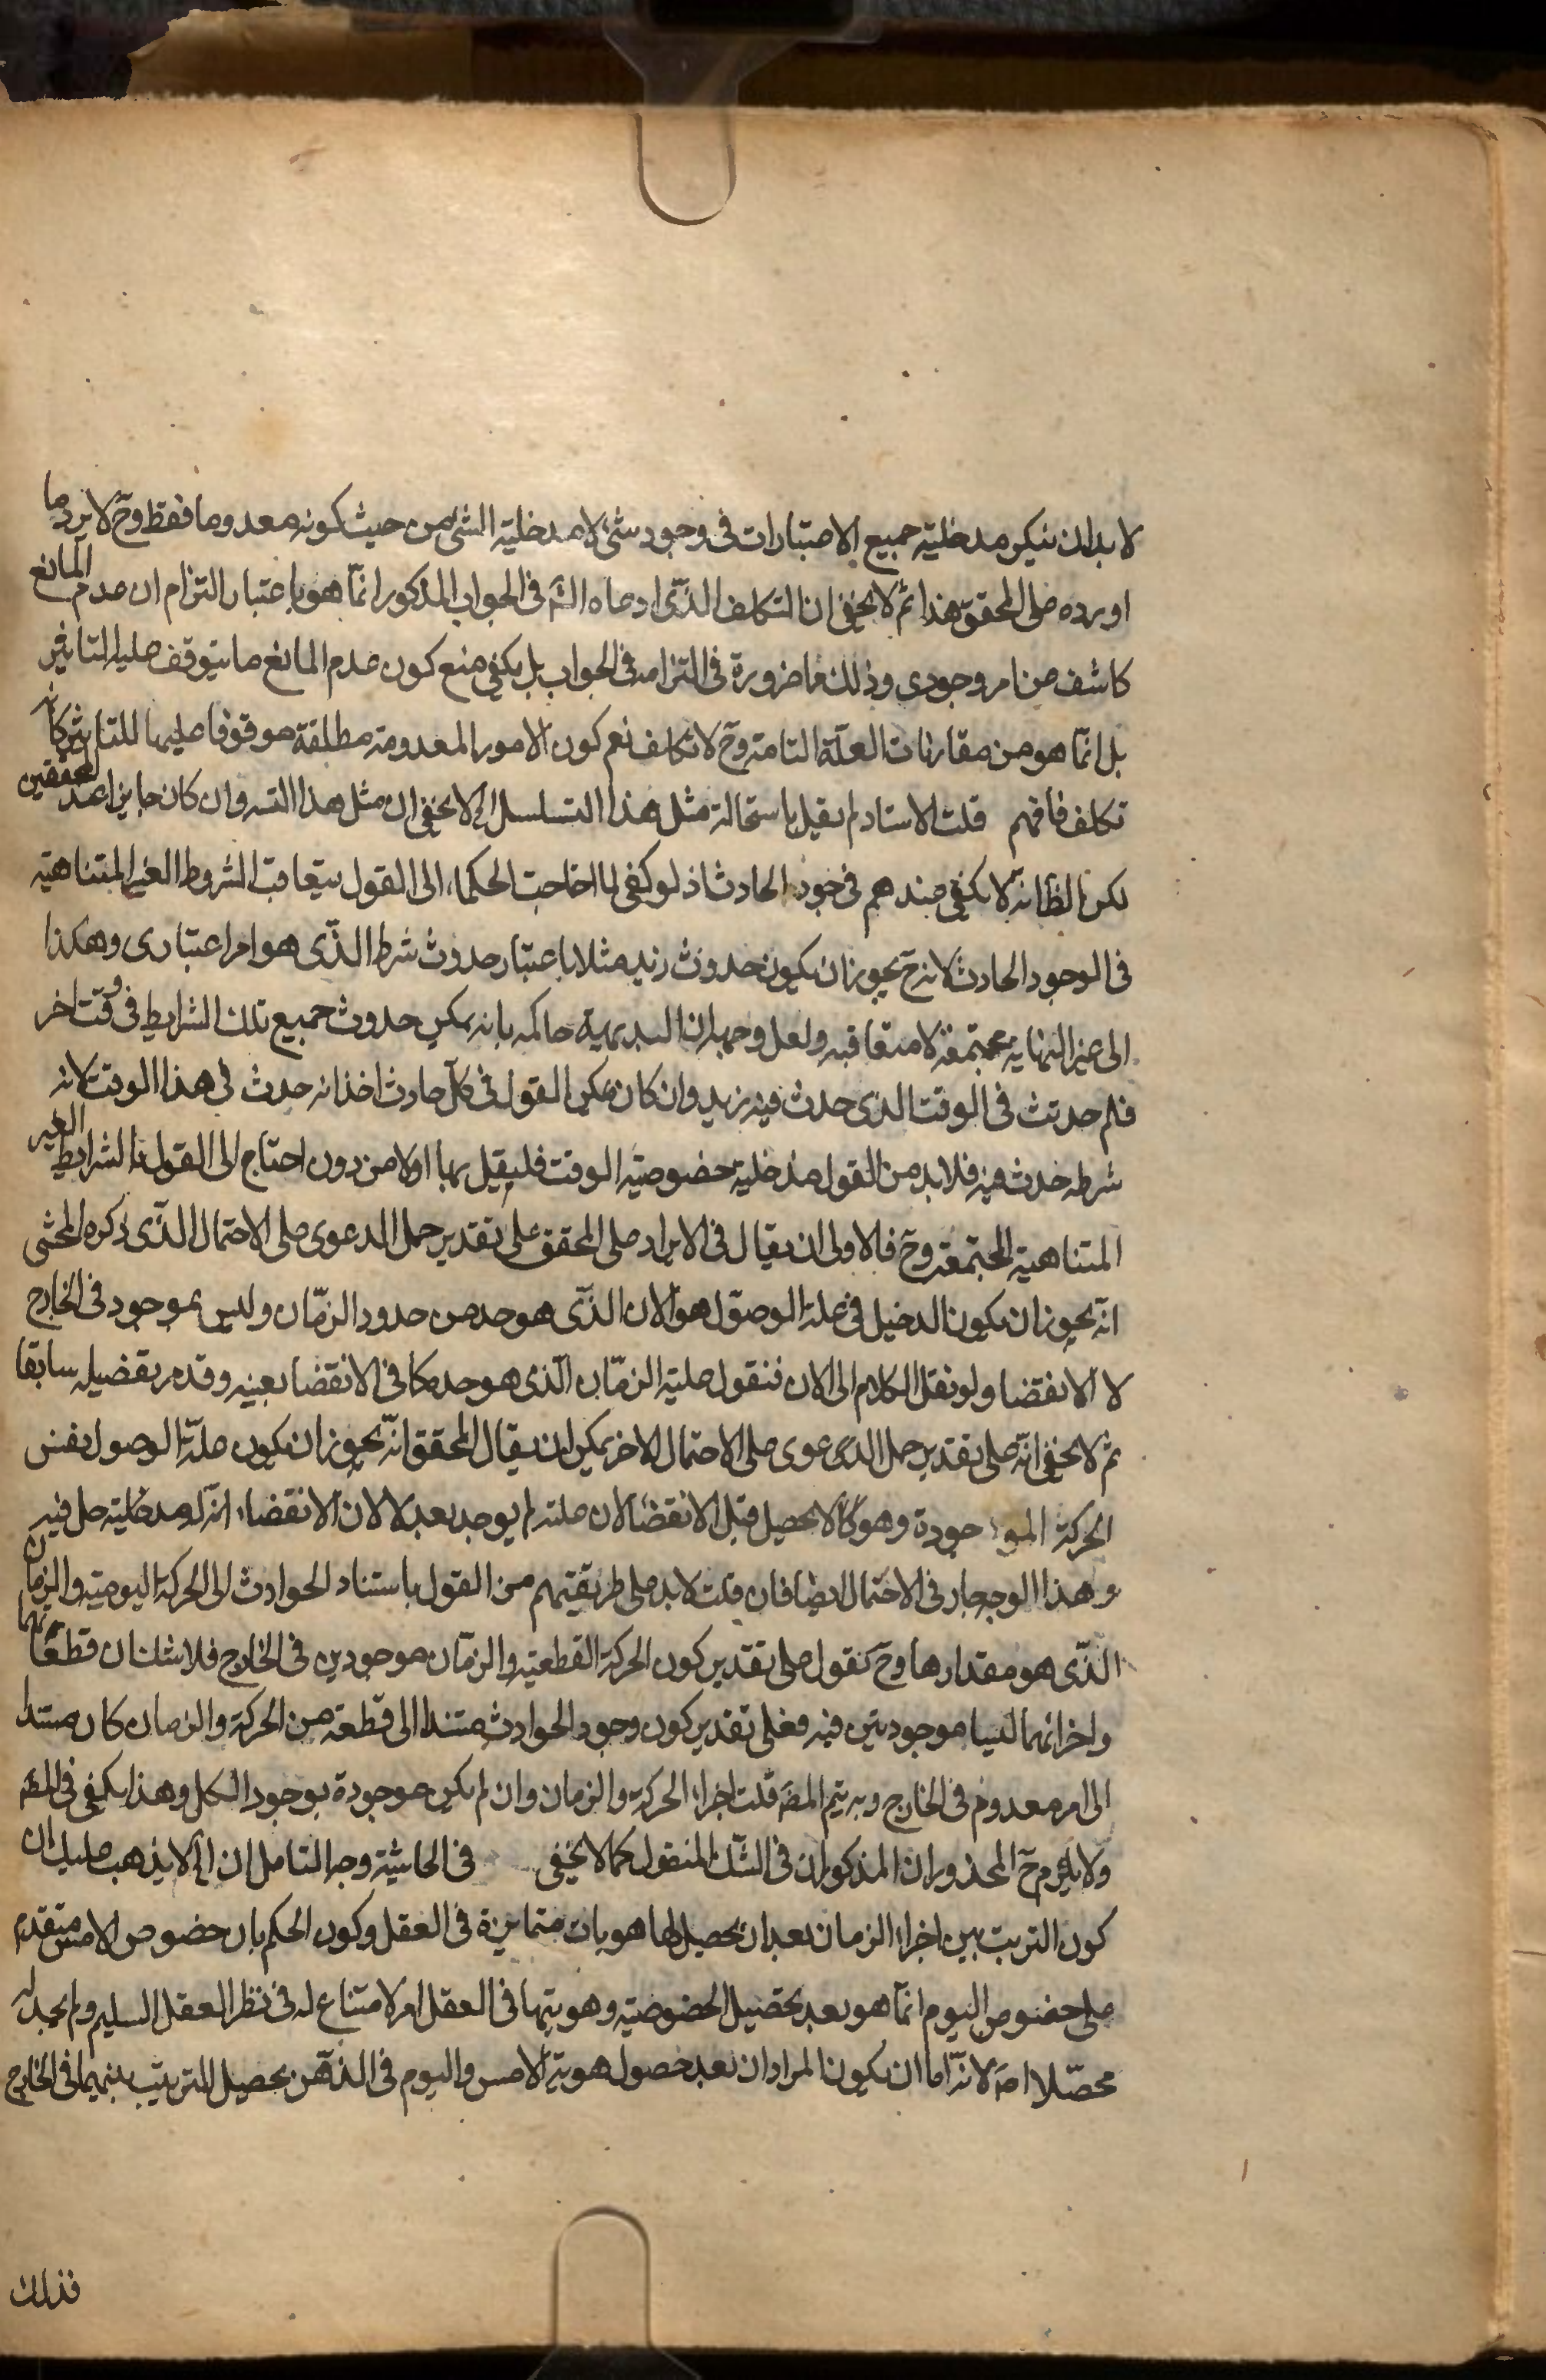 لا بد ان ينكر مدخلية جميع الاعتبارات فى وجود شئ لا مدخلية الشئ من حيث كونه معدوما فقط وح لا يرد ما
اورده على المحقق هذا ثم لا يخفى ان التكلف الذى ادعاه الش فى الجواب المذكور انما هو باعتبار التزام ان عدم المانع
كاشف عن امر وجودى وذلك مما ضرورة فى التزامه فى الجواب بل يكفى منع كون عدم المانع ما يتوقف عليه التاثير
بل انما هو من مقارنات العلة التامة وح لا تكلف نعم كون الامور المعدومة مطلقة موقوفا عليها للتاثير كانه
تكلف فافهم قلت الاستاد لم يقل باستحالة مثل هذا التسلسل الخ لا يخفى ان مثل هذا التسه وان كان جايزا عند المحققين
لكن الظ انه لا يكفى عندهم فى وجود الحادث اذ لو كفى لما احتاجت الحكماء الى القول بتعاقب الشروط الغير المتناهية
فى الوجود الحادث لانه ح يجوز ان يكون حدوث زيد مثلا باعتبار حدوث شرط الذى هو امر اعتبارى وهكذا
الى غير النهاية مجتمعة لا متعاقبه ولعل وجهه ان البديهية حاكمه بانه يمكن حدوث جميع تلك الشرايط فى وقت اخر
فلم حدثت فى الوقت الذى حدث فيه زيد وان كان يمكن القول فى كل حادث اخذ انه حدث فى هذا الوقت لانه
شرطه حدث فيه فلا بد من القول مدخلية خصوصية الوقت فليقيل بها اولا من دون احتاج الى القول بالشرايط الغير
المتناهية المجتمعة وح فالاولى ان يقال فى الايراد على المحقق على تقدير حمل الدعوى على الاحتمال الذى ذكره المحشى
انه يجوز ان يكون الدخيل فى علة الوصول هو الان الذى هو حد من حدود الزمان وليس بموجود فى الخارج
لا الانقضا ولو نقل الكلام الى الان فنقول علية الزمان الذى هو حده كما فى الانقضا بعينه وقد مر تفصيله سابقا
ثم لا يخفى انه على تقدير حمل الدعوى على الاحتمال الاخر يمكن ان يقال المحقق انه يجوز ان يكون علة الوصول نفس
الحركة الموجودة وهو كما لا يحصل قبل الانقضا لان علته لم يوجد بعد لا لان الانقضاء انه له مدخلية حل فيه
وهذا الوجه جار فى الاحتمال ايضا فان قلت لا بد على طريقتهم من القول باستناد الحوادث الى الحركة اليومية والزمان
الذى هو مقدارها وح نقول على تقدير كون الحركة القطعية والزمان موجودين فى الخارج فلا شك ان قطعاتهما
واجزائهما ليسا موجودتين فيه فعلى تقدير كون وجود الحوادث مستندا الى قطعة من الحركة والزمان كان مستندا
الى امر معدوم فى الخارج وبه يتم المط قلت اجزاء الحركة والزمان وان لم يكن موجودة بوجود الكل وهذا يكفى فى المط
ولا يلزم ح المحذوران المذكوران فى الشك المنقول كما لا يخفى فى الحاشية وجه التامل ان الخ لا يذهب عليك ان
كون الترتب بين اجزاء الزمان بعد ان يحصل لها هويات متمايزة فى العقل وكون الحكم بان خصوص الامس متقدم
على خصوص اليوم انما هو بعد تحصيل الخصوصية وهويتها فى العقل امر لا امتناع له فى نظر العقل السليم ولم يجد له
محصلا اصه لانه اما ان يكون المراد ان بعد حصول هوية الامس واليوم فى الذهن يحصل الترتيب بينهما فى الخارج
فذلك